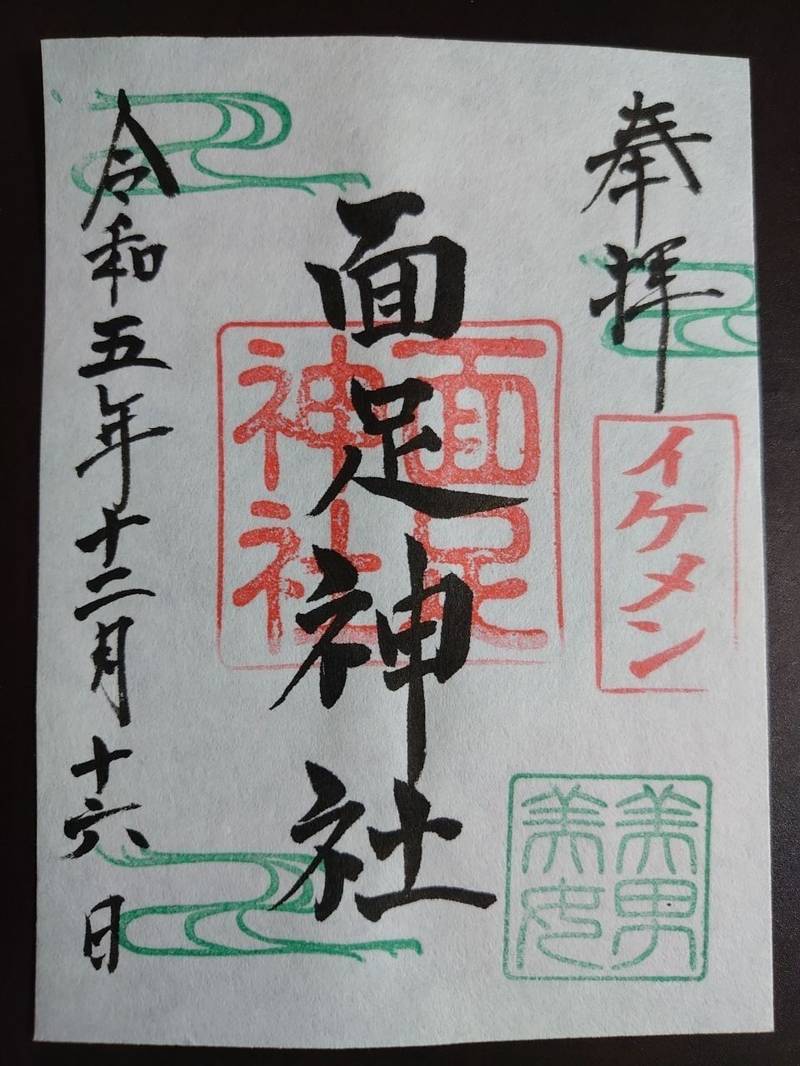 奉拝
イケメン
美男
美女
面足神社
面足
神社
令和五年十二月十六日